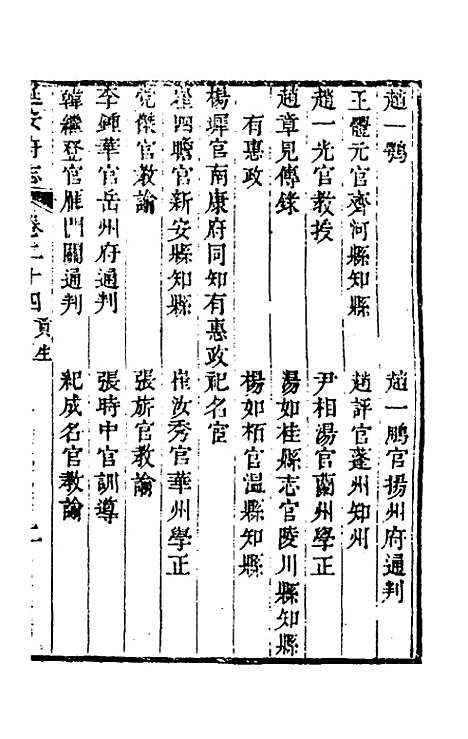 趙一鶚　趙一鵬官揚州府通判
王體元官齊河縣知縣　趙評官蓬州知州
趙一光官教授　尹相湯官蘭州學正
趙章見傳錄　湯如桂縣志官陵川縣知縣
有惠政　楊如栢官溫縣知縣
楊墀官南康府同知有惠政祀名宦
崔四瞻官新安縣知縣　崔汝秀官華州學正
党傑官教諭　張旂官教諭
李鍾華官岳州府通判　張時中官訓導
韓繼登官雁門關通判　紀成名官教諭
延安府志　卷二十四　貢生